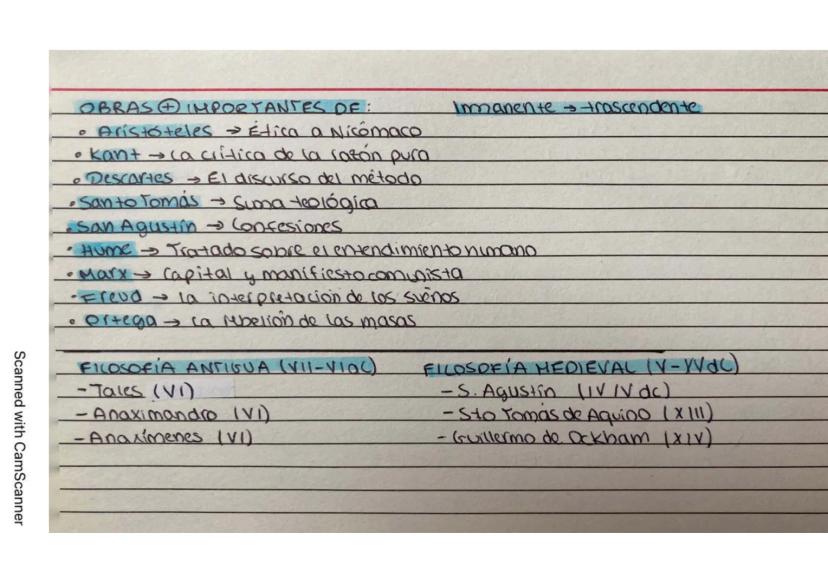 OBRAS ⊕ IMPORTANTES DE: Inmanente → trascendente
• Aristóteles → Ética a Nicómaco
• Kant → La crítica de la razón pura
• Descartes → El discurso del método
• Santo Tomás → Suma teológica
• San Agustín → Confesiones
• Hume → Tratado sobre el entendimiento humano
• Marx → Capital y manifiesto comunista
• Freud → la interpretación de los sueños
• Ortega → La rebelión de las masas
FILOSOFÍA ANTIGUA (VII-VI aC) FILOSOFÍA MEDIEVAL (V-XV dC)
- Tales (VI) - S. Agustín (IV IV dc)
- Anaximandro (VI) - Sto Tomás de Aquino (XIII)
- Anaxímenes (VI) - Guillermo de Ockham (XIV)
Scanned with CamScanner